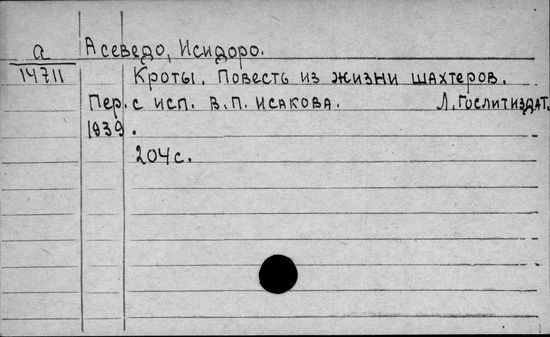 а Асеведо, Исидоро.
14711 Кроты. Повесть из жизни шахтеров.
Пер. с исп. В.П. Исакова. Л. Гослитиздат.
1939.
204 с.